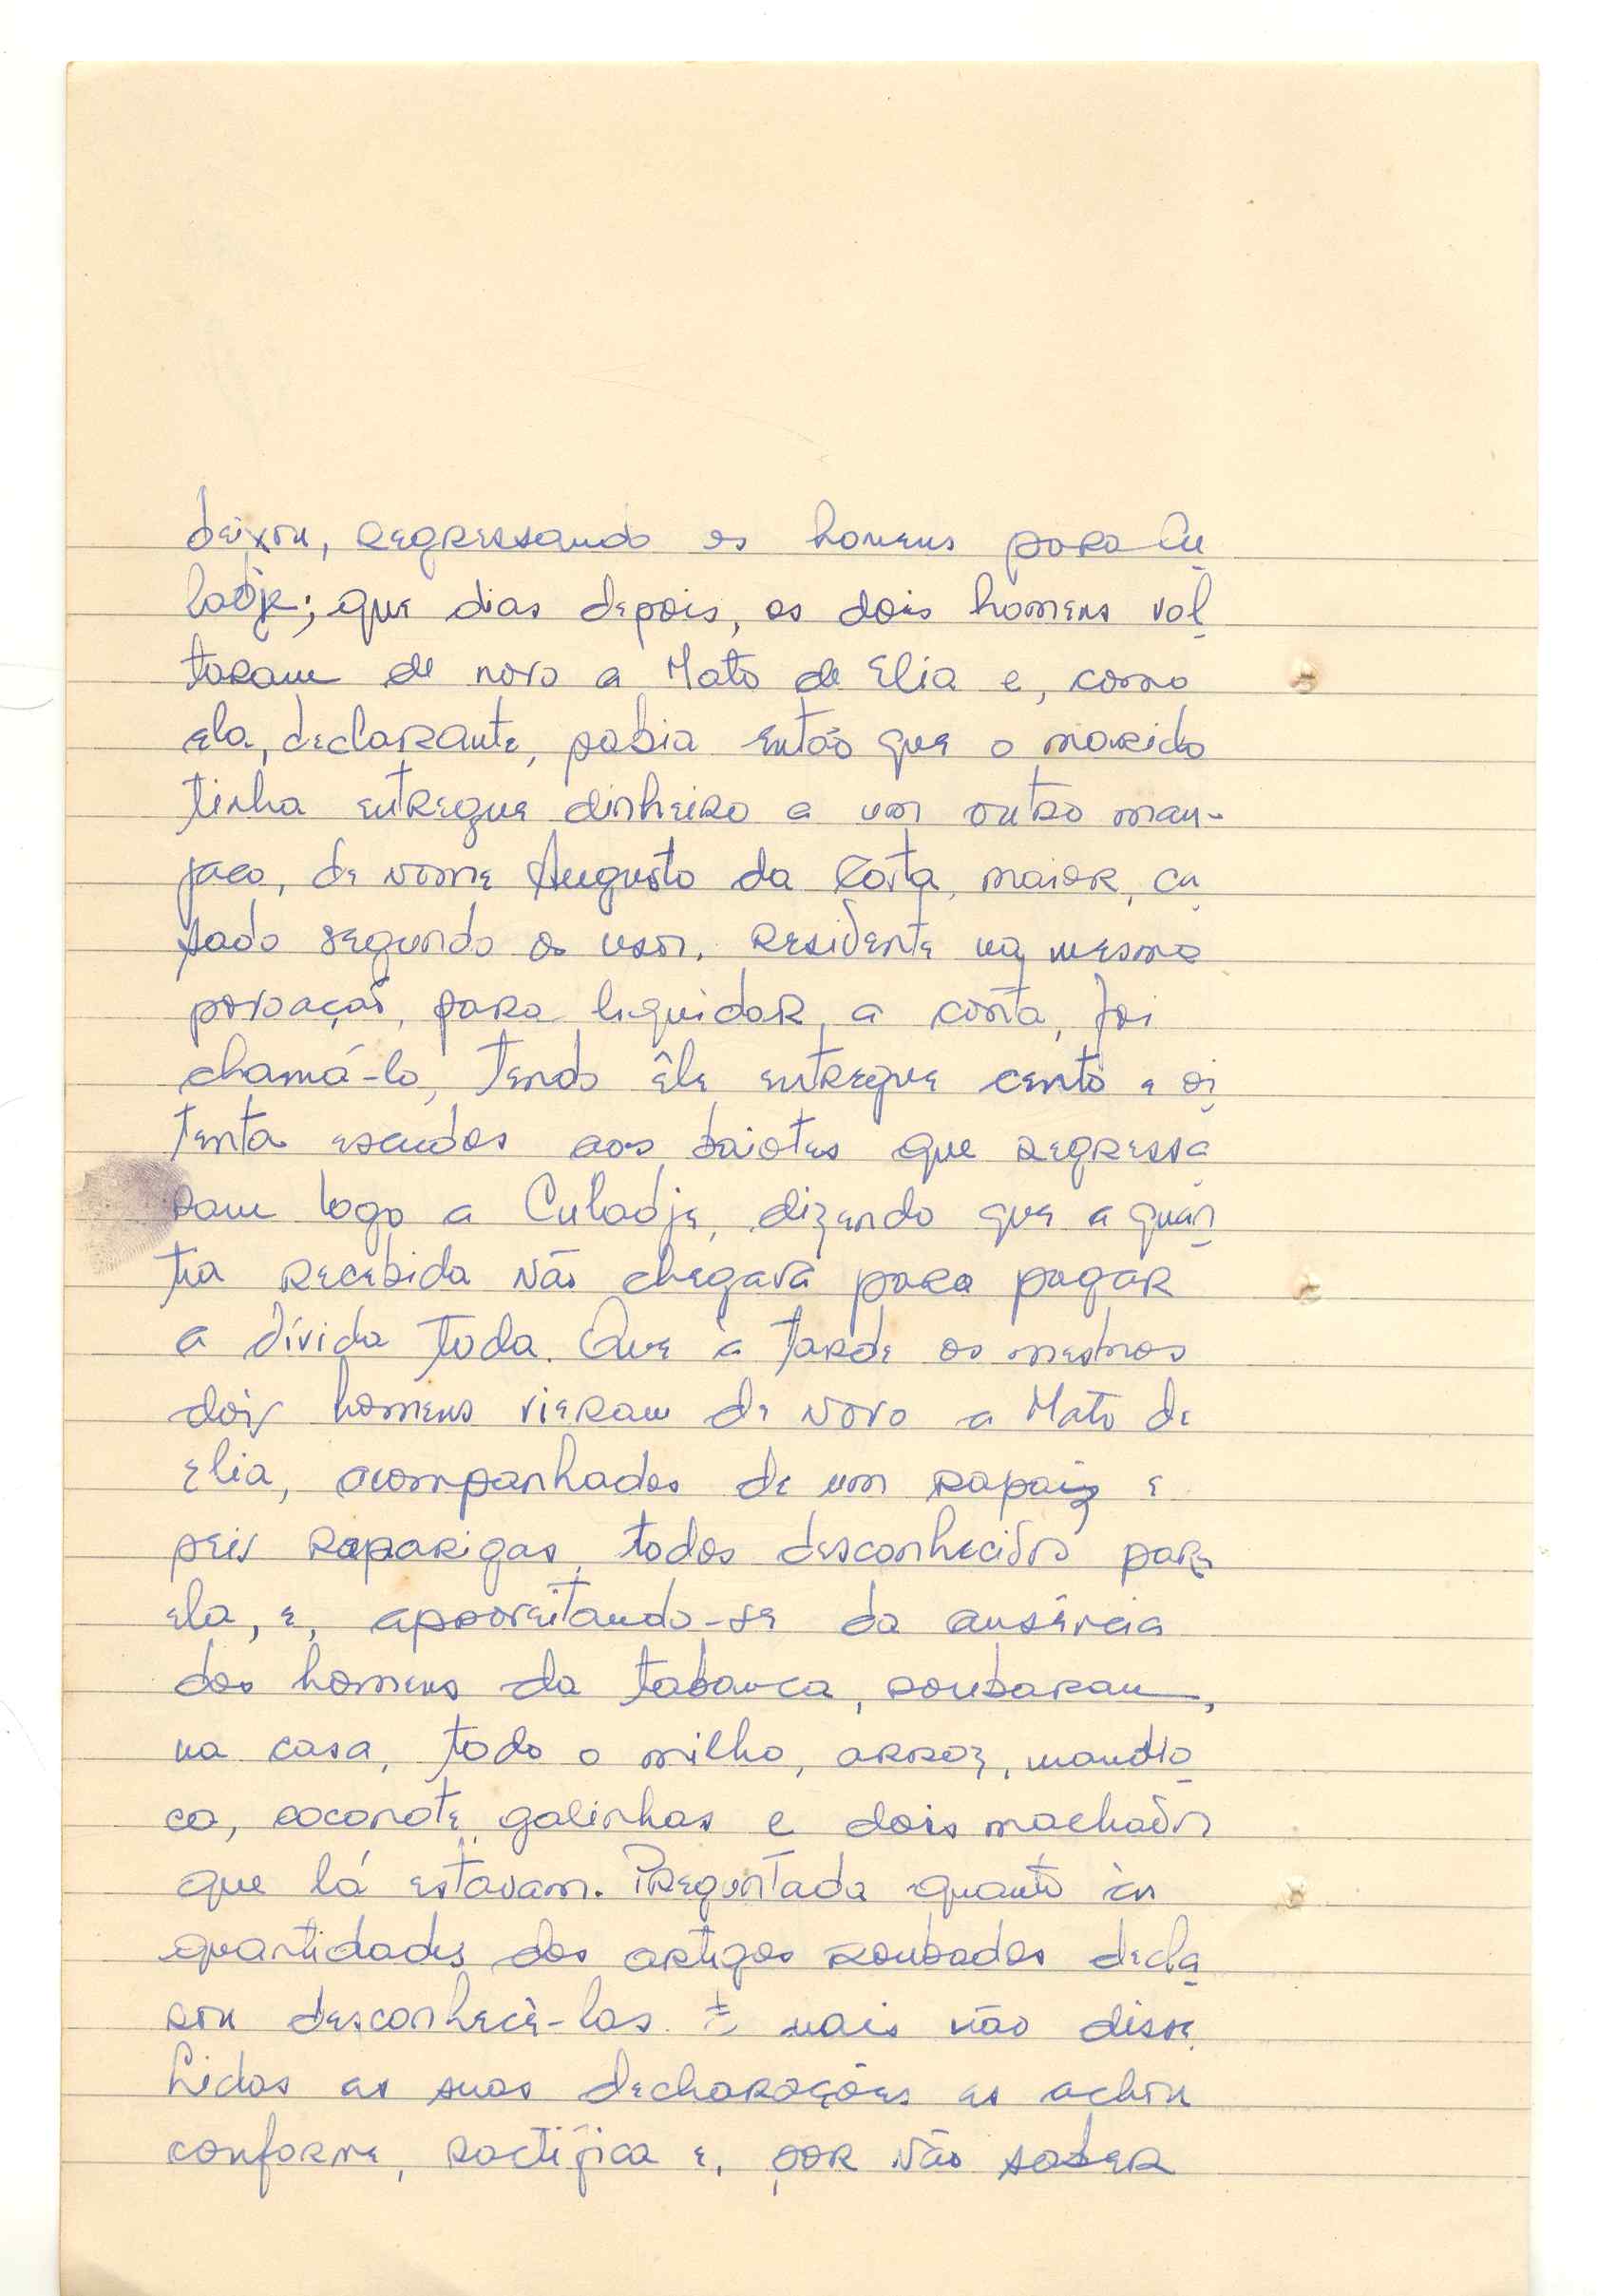 deixou, regressando os homens para Cu
ladje; que dias depois, os dois homens vol
taram de novo a Mato de Elia e, como
ela, declarante, sabia então que o marido
tinha entregue dinheiro a um outro man-
jaco, de nome Augusto da Costa, maior, ca
sado segundo os usos, residente na mesma
povoação, para liquidar a conta, foi
chamá-lo, tendo êle entregue cento e oi
tenta escudos aos baiotes que regressa
ram logo a Culadje, dizendo que a quan
tia recebida não chegava para pagar
a dívida toda. Que à tarde os mesmos
dois homens vieram de novo a Mato de
Elia, acompanhados de um rapaiz e
seis raparigas, todos desconhecidos para
ela, e, aproveitando-se da ausência
dos homens da tabanca, roubaram,
na casa, todo o milho, arroz, mandio
ca, coconote, galinhas e dois machados
que lá estavam. Preguntada quanto às
quantidades dos artigos roubados decla
rou desconhecê-las. E mais não disse.
Lidas as suas declarações as achou
conforme, ractifica e, por não saber